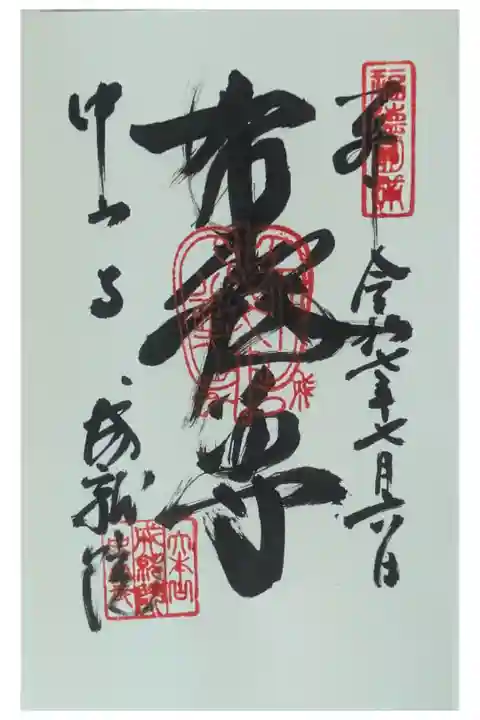 奉拝
令和七年七月六日
布袋尊
中山寺
成就院
大本山
成就院